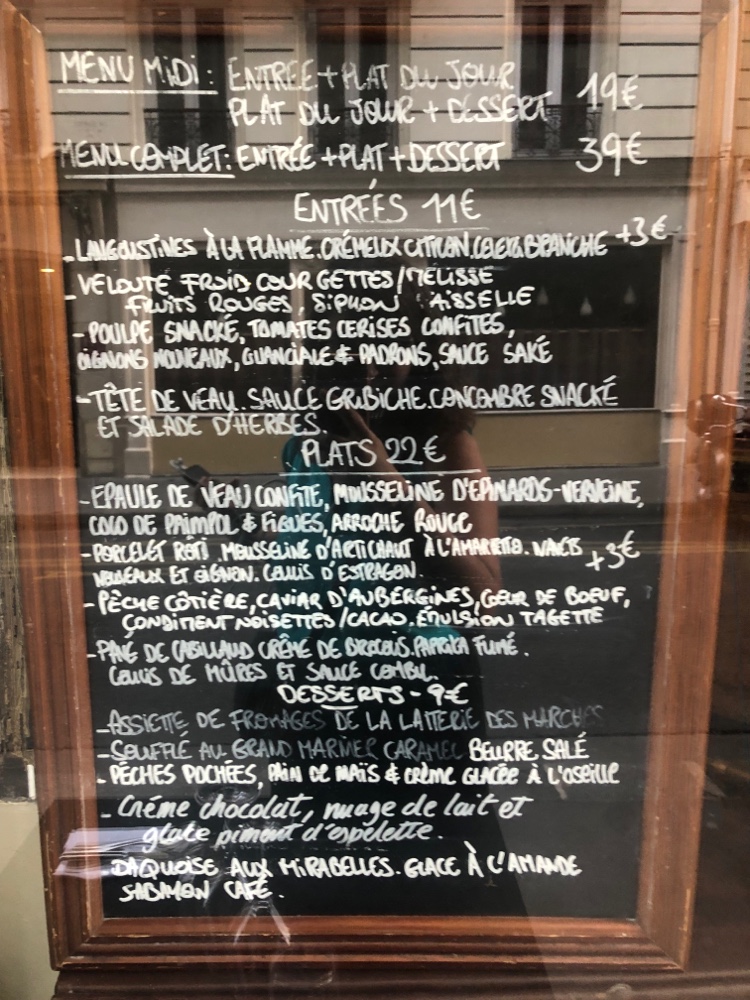 MENU MIDI : ENTREE + PLAT DU JOUR
PLAT DU JOUR + DESSERT 19€
MENU COMPLET : ENTRÉE + PLAT + DESSERT 39€
ENTRÉES 11€
- LANGOUSTINES À LA FLAMME. CRÉMEUX CITRON. CELERI BRANCHE +3€
- VELOUTÉ FROID COURGETTES / MÉLISSE
FRUITS ROUGES, SIPHON FAISSELLE
- POULPE SNACKÉ, TOMATES CERISES CONFITES,
OIGNONS NOUVEAUX, GUANCIALE & PADRONS, SAUCE SAKÉ
- TÊTE DE VEAU. SAUCE GRIBICHE. CONCOMBRE SNACKÉ
ET SALADE D'HERBES.
PLATS 22€
- EPAULE DE VEAU CONFITE, MOUSSELINE D'EPINARDS-VERVEINE,
COCO DE PAIMPOL & FIGUES, ARROCHE ROUGE
- PORCELET RÔTI. MOUSSELINE D'ARTICHAUT À L'AMARETTO. NAVETS +3€
NOUVEAUX ET OIGNON. COULIS D'ESTRAGON.
- PÊCHE CÔTIÈRE, CAVIAR D'AUBERGINES, COEUR DE BOEUF,
CONDIMENT NOISETTES / CACAO. ÉMULSION TAGETTE
- PAVÉ DE CABILLAUD CRÈME DE BROCOLIS. PAPRIKA FUMÉ.
COULIS DE MÛRES ET SAUCE COMBU.
DESSERTS - 9€
- ASSIETTE DE FROMAGES DE LA LAITERIE DES MARCHES
- SOUFFLÉ AU GRAND MARINER CARAMEL BEURRE SALÉ
- PÊCHES POCHÉES, PAIN DE MAÏS & CRÈME GLACÉE À L'OSEILLE
- Crème chocolat, nuage de lait et
glace piment d'espelette.
DAQUOISE AUX MIRABELLES. GLACE À L'AMANDE
SABAYON CAFÉ.